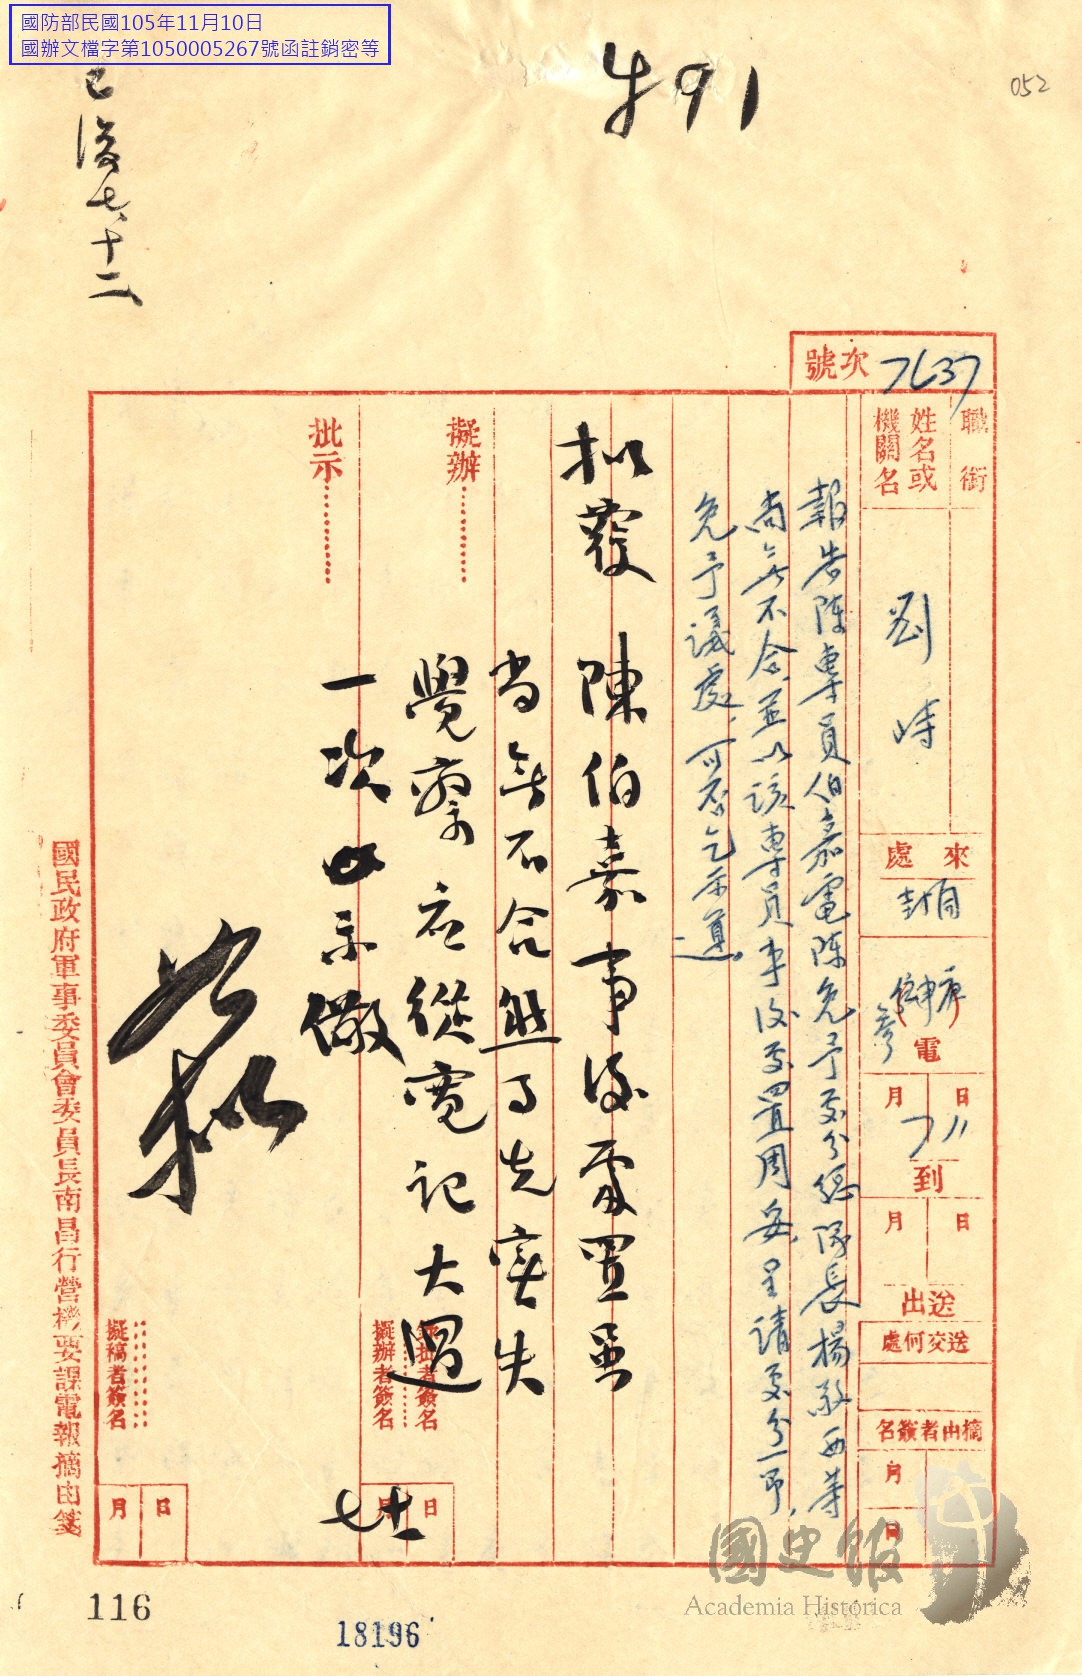 國防部民國105年11月10日
國辦文檔字第1050005267號函註銷密等
052
491
已復七、十二
號次 7637
職銜
姓名或機關名
劉峙
來處
開封
電
月 日
7 11
到
月 日
送出
送交何處
摘由者簽名
月 日
報告陳專員伯嘉電陳免予處分總隊長楊啟西等
尚無不合並以該專員事後處置周妥呈請處分一節,
免予議處,可否乞示遵
擬辦
擬覆 陳伯嘉事後處置雖
尚無不合然事先實失
覺察應從寬記大過
一次以示儆
批示
如擬
錄批者簽名
擬辦者簽名
月 日
七 十一
擬稿者簽名
月 日
國民政府軍事委員會委員長南昌行營機要課電報摘由箋
116
18196
國史館
Academia Historica